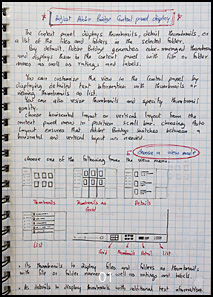 Adjust Adobe Bridge Content panel display
The Content panel displays thumbnails, detail thumbnails, or
a list of the files and folders in the selected folder.
By default, Adobe Bridge generates color-managed thumbnails
and displays them in the Content panel with file or folder
names as well as ratings and labels.
You can customize the view in the Content panel by
displaying detailed text information with thumbnails or
viewing thumbnails as list.
You can also resize thumbnails and specify thumbnail
quality.
Choose horizontal or vertical layout from the
content panel menu to position scroll bar, choosing Auto
Layout ensures that Adobe Bridge switches between a
horizontal and vertical layout as needed.
Choose a view mode
choose one of the following from the view menu:
Thumbnails
Thumbnails as
Grid
Details
List
Grid
Thumbnails
Details
List
As Thumbnails to display files and folders as thumbnails
with file or folder names, as well as ratings and labels
As details to display thumbnails with additional text information